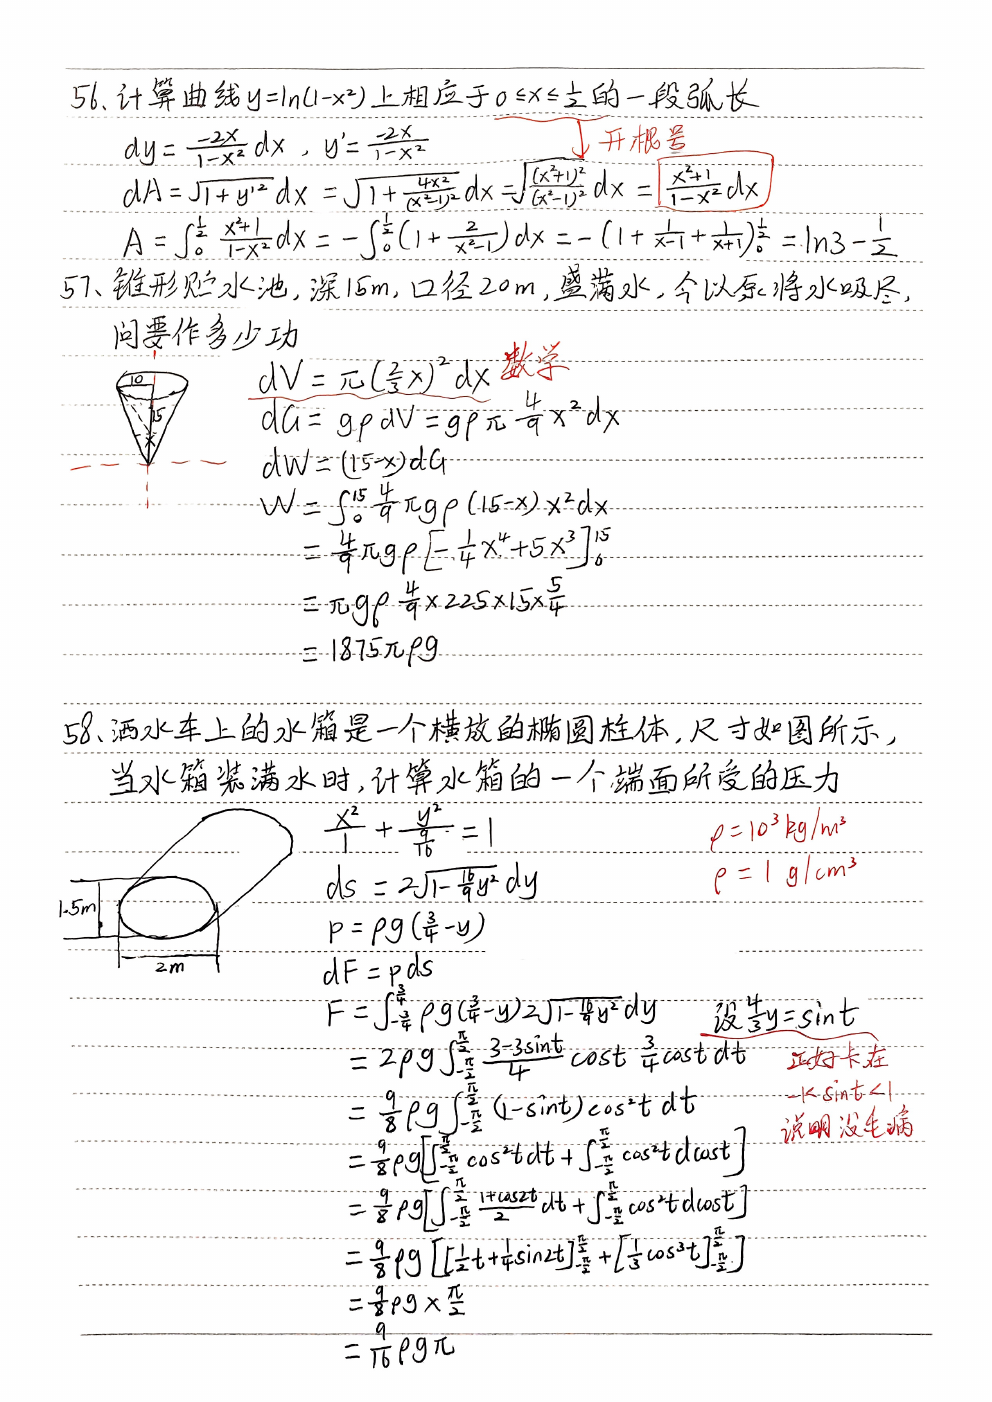 56、计算曲线y=ln(1-x²)上相应于0≤x≤1/2的一段弧长
dy = -2x/(1-x²) dx , y' = -2x/(1-x²)
开根号
dA = √(1+y'²) dx = √(1+4x²/(x²-1)²) dx = √((x²+1)²/(x²-1)²) dx = (x²+1)/(1-x²) dx
A = ∫₀^(1/2) (x²+1)/(1-x²) dx = -∫₀^(1/2) (1+2/(x²-1)) dx = -(1+1/(x-1)+1/(x+1))₀^(1/2) = ln3-1/2
57、锥形贮水池,深15m,口径20m,盛满水,今以泵将水吸尽,
问要作多少功
10
15
x
dV = π(2/3 x)² dx 数学
dG = gρdV = gρπ 4/9 x² dx
dW = (15-x)dG
W = ∫₀¹⁵ 4/9 πgρ(15-x) x² dx
= 4/9 πgρ[-1/4 x⁴+5x³]₀¹⁵
= πgρ 4/9 ×225×15×5/4
= 1875πρg
58、洒水车上的水箱是一个横放的椭圆柱体,尺寸如图所示,
当水箱装满水时,计算水箱的一个端面所受的压力
1.5m
2m
x²/1 + y²/(9/16) = 1
ρ=10³kg/m³
ρ = 1 g/cm³
ds = 2√(1-16/9 y²) dy
p = ρg(3/4-y)
dF = pds
F = ∫_(-3/4)^(3/4) ρg(3/4-y)2√(1-16/9 y²) dy
设4/3 y=sint
正好卡在
-1<sint<1
说明没毛病
= 2ρg∫_(-π/2)^(π/2) (3-3sint)/4 cost 3/4 cost dt
= 9/8 ρg∫_(-π/2)^(π/2) (1-sint)cos²t dt
= 9/8 ρg[∫_(-π/2)^(π/2) cos²tdt+∫_(-π/2)^(π/2) cos²tdcost]
= 9/8 ρg[∫_(-π/2)^(π/2) (1+cos2t)/2 dt+∫_(-π/2)^(π/2) cos²tdcost]
= 9/8 ρg[[1/2 t+1/4 sin2t]_(-π/2)^(π/2)+[1/3 cos³t]_(-π/2)^(π/2)]
= 9/8 ρg×π/2
= 9/16 ρgπ